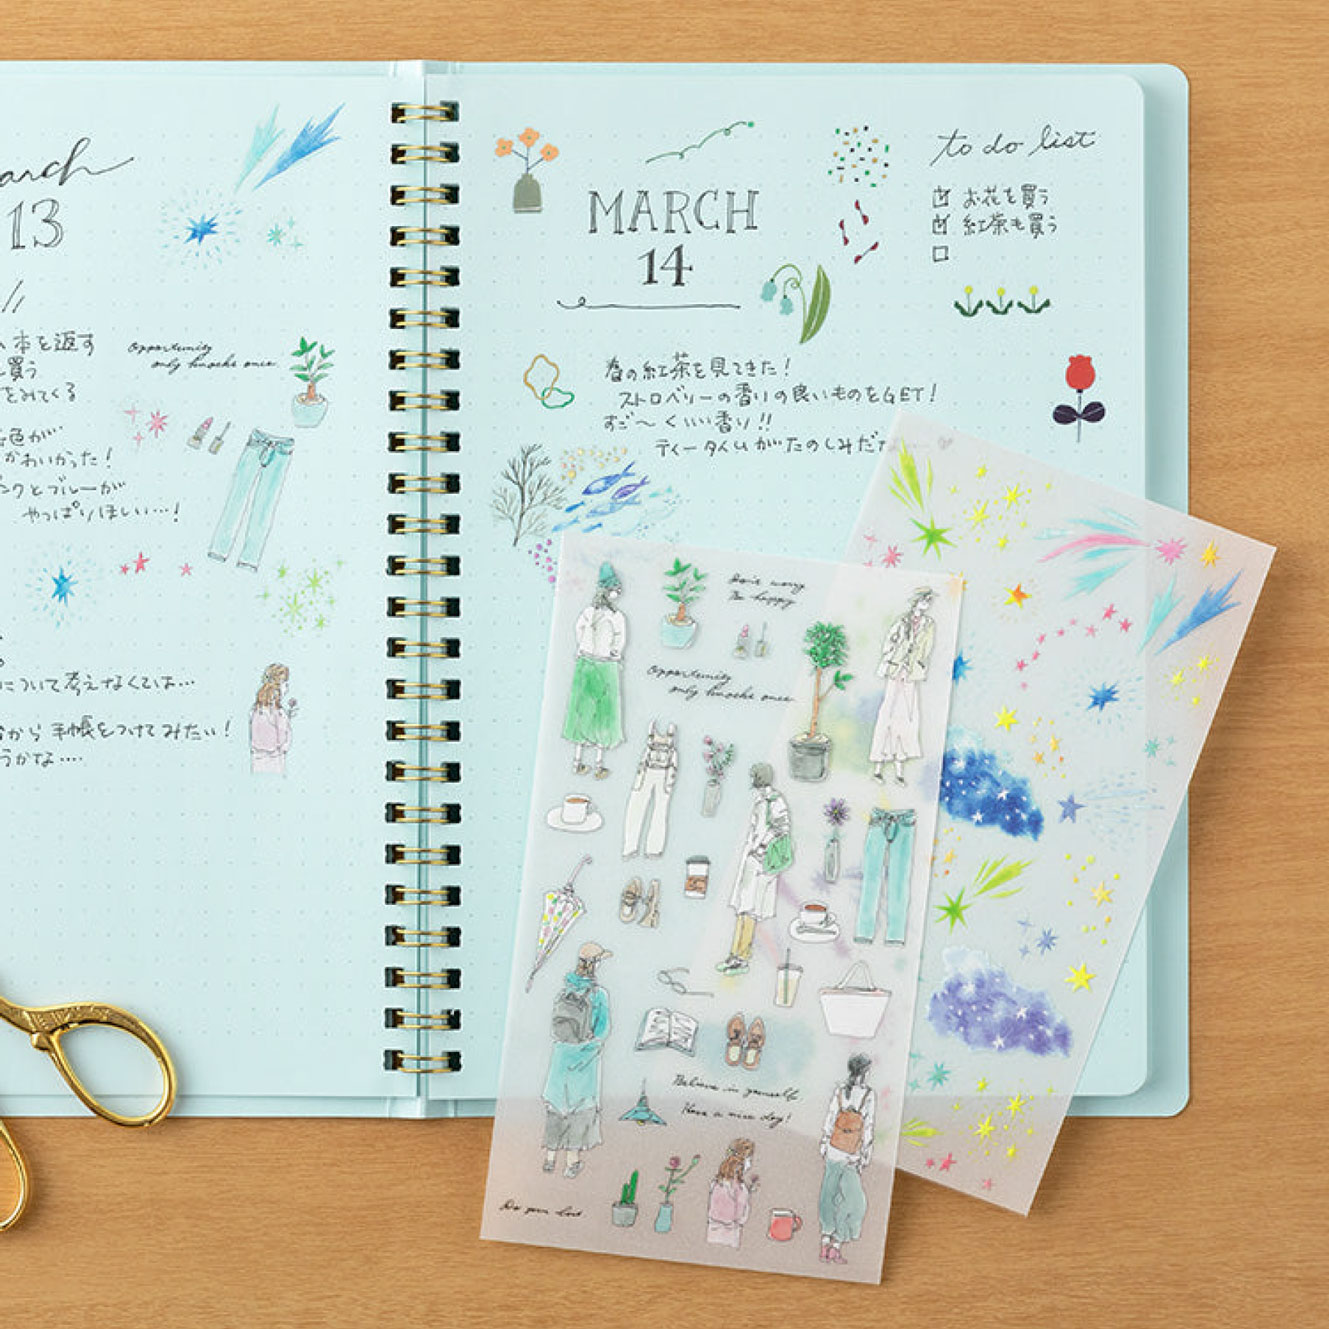 arch
13
本を返す
買う
をみてくる
Opportunity
only knocks once.
色が
かわいかった!
ンクとブルーが
やっぱりほしい…!
について考えなくては…
から 手帳をつけてみたい!
うかな‥‥
MARCH
14
to do list
お花を買う
紅茶も買う
春の紅茶を見てきた!
ストロベリーの香りの良いものをGET!
すご〜くいい香り!!
ティータイムがたのしみだ
Don't worry
Be happy
Opportunity
only knocks once.
Believe in yourself.
Have a nice day!
Do your best